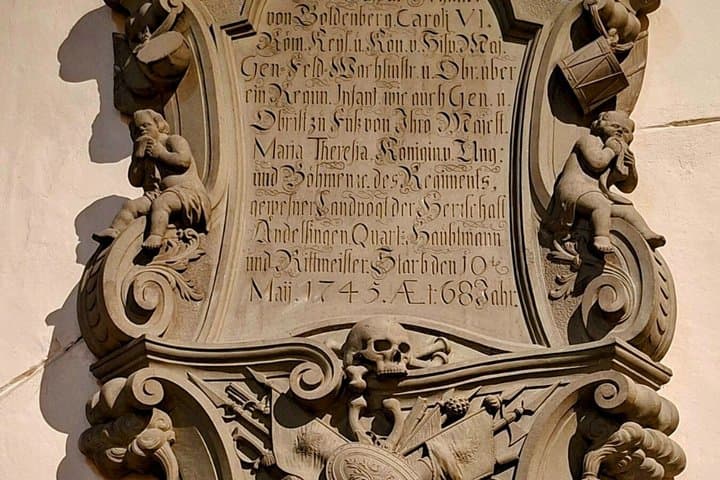 von Goldenberg, Caroli VI.
Röm. Keys. u. Kön. v. Hisp. Maj.
Gen. Feld Wachtmstr. u. Obr. über
ein Regim. Infant. wie auch Gen. u.
Obrist zu Fuß von Ihro Majest.
Maria Theresia, Königin v. Ung:
und Böhmen ꝛc. des Regiments,
gewesner Landvogt der Herrschafft
Andelfingen, Quart. Haubtmann
und Rittmeister. Starb den 10te
Maÿ. 1745. Æt. 68 Jahr.